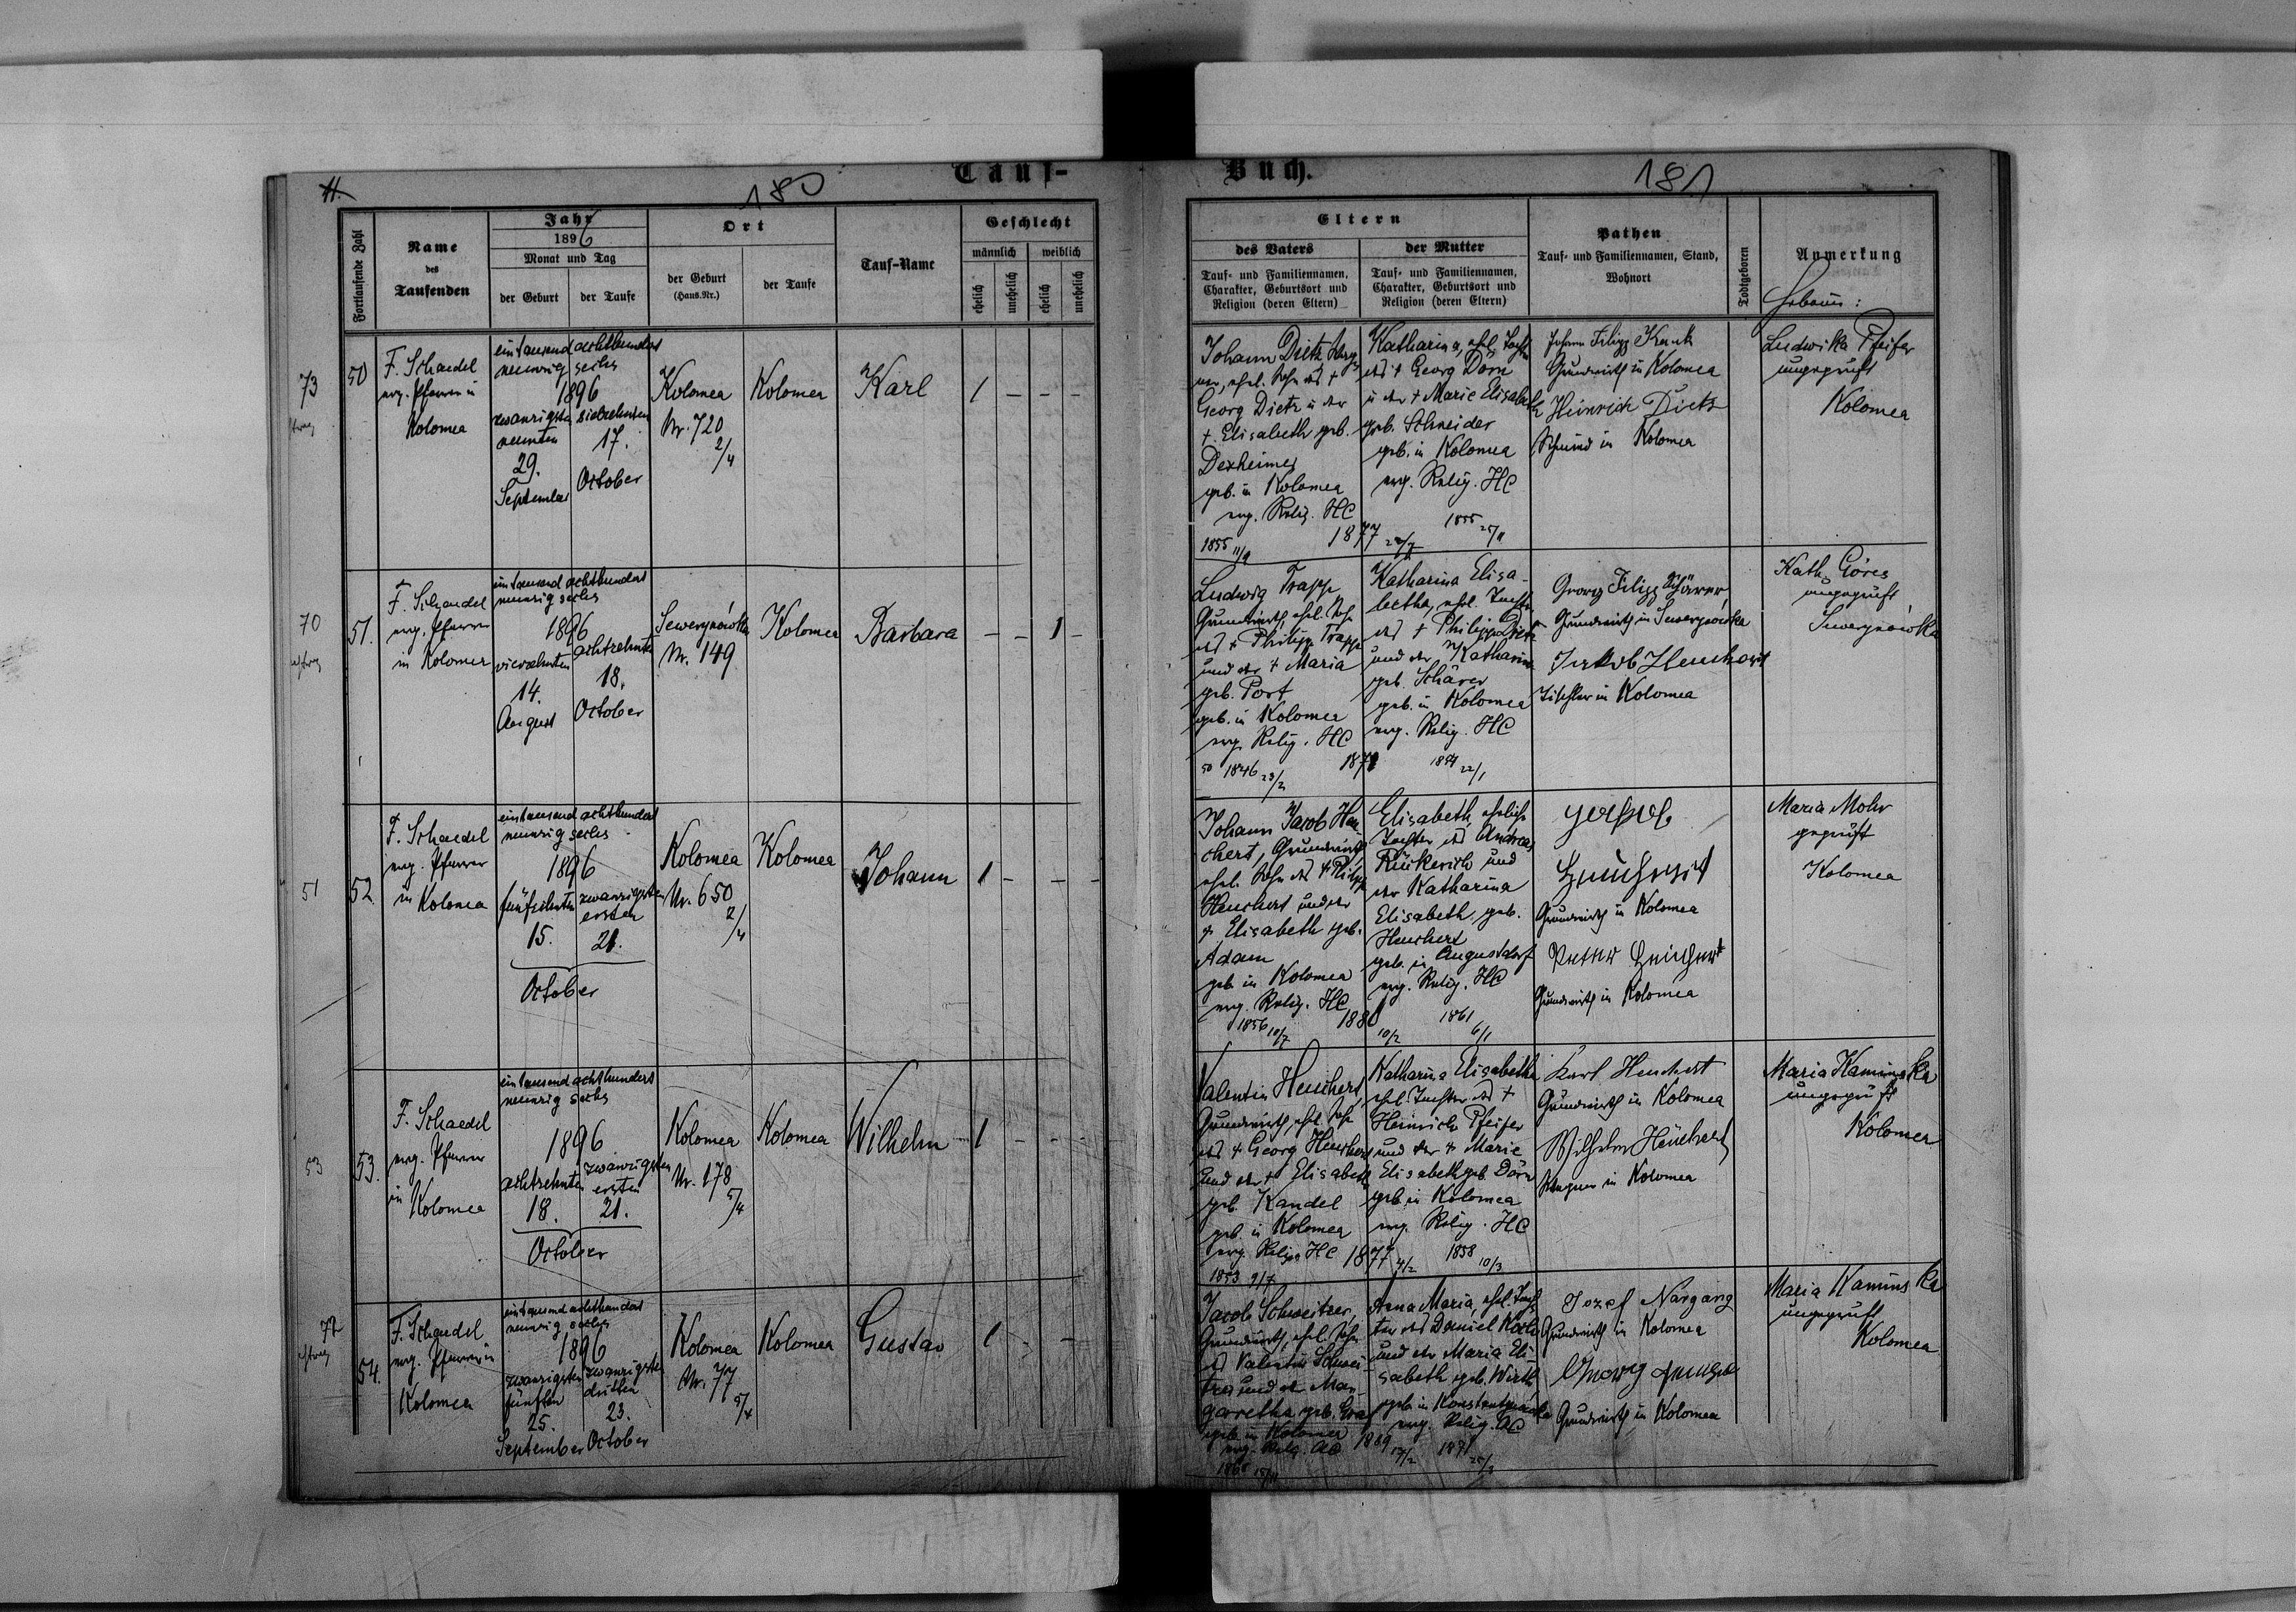 11.
180
Tauf-
Fortlaufende Zahl
Name
des
Taufenden
Jahr
1896
Monat und Tag
der Geburt
der Taufe
Ort
der Geburt
(Haus.Nr.)
der Taufe
Tauf-Name
Geschlecht
männlich
weiblich
ehelich
unehelich
ehelich
unehelich
73
50
F. Schaedel
evg. Pfarrer in
Kolomea
eintausend achthundert
neunzig sechs
1896
zwanzigsten
neunten
29.
September
siebzehnten
17.
October
Kolomea
Nr. 720
2/4
Kolomea
Karl
1 - - -
70
51.
F. Schaedel
evg. Pfarrer
in Kolomea
eintausend achthundert
neunzig sechs
1896
vierzehnten
14.
August
achtzehnten
18.
October
Sewerynówka
Nr. 149
Kolomea
Barbara
- - 1 -
51
52
F. Schaedel
evg. Pfarrer
in Kolomea
eintausend achthundert
neunzig sechs
1896
fünfzehnten
15.
zwanzigsten
ersten
21.
October
Kolomea
Nr. 650
2/4
Kolomea
Johann
1 - - -
53
53.
F. Schaedel
evg. Pfarrer
in
Kolomea
eintausend achthundert
neunzig sechs
1896
achtzehnten
18.
zwanzigsten
ersten
21.
October
Kolomea
Nr. 178
5/4
Kolomea
Wilhelm
1 - - -
72
54.
F. Schaedel
evg. Pfarrer in
Kolomea
eintausend achthundert
neunzig sechs
1896
zwanzigsten
fünften
25.
September
zwanzigsten
dritten
23.
October
Kolomea
Nr. 77
5/4
Kolomea
Gustav
1 - - -
Buch.
181
Eltern
des Vaters
Tauf- und Familiennamen,
Charakter, Geburtsort und
Religion (deren Eltern)
der Mutter
Tauf- und Familiennamen,
Charakter, Geburtsort und
Religion (deren Eltern)
Pathen
Tauf- und Familiennamen, Stand,
Wohnort
Todtgeboren
Anmerkung
Hebamme:
Johann Dietz
ehel. Sohn des +
Georg Dietz u der
+ Elisabeth geb.
Dexheimer
geb. in Kolomea
evg. Relig. HC
1855 11/9
1877
Katharina, ehel. Tocht
des + Georg Dorn
u der + Marie Elisabeth
geb. Schneider
geb. in Kolomea
evg. Relig. HC
1855
Johann Filipp Kautz
Grundwirth in Kolomea
Heinrich Dietz
Schmied in Kolomea
Ludwika Pfeifer
ungeprüft
Kolomea
Ludwig Trapp
Grundwirth, ehel. Sohn
des + Philipp Trapp
und der + Maria
geb. Port
geb. in Kolomea
evg. Relig. HC
50 1846 23/2
Katharina Elisa-
betha, ehel. Tochter
des + Philipp Dietz
und der Katharina
geb. Schärer
geb. in Kolomea
evg. Relig. HC
1854 22/1
Georg Filipp Schärer,
Grundwirth in Sewerynówka
Jakob Heuchert
Tischler in Kolomea
Kath. Göres
ungeprüft
Sewerynówka
Johann Jacob Heu-
chert, Grundwirth,
ehel. Sohn des + Philipp
Heuchert und der
+ Elisabeth geb.
Adam
geb. in Kolomea
evg. Relig. HC
1856 10/7
1880 10/2
Elisabeth, eheliche
Tochter des Andreas
Rückerich und
der Katharina
Elisabeth, geb.
Heuchert
geb. in Augustdorf
evg. Relig. HC
1861 6/1
Jakob
Heuchert
Grundwirth in Kolomea
Petter Heuchert
Grundwirth in Kolomea
Maria Mohr
geprüft
Kolomea
Valentin Heuchert,
Grundwirth, ehel. Sohn
des + Georg Heuchert
und der + Elisabeth
geb. Kandel
geb. in Kolomea
evg. Relig. HC
1853 9/7
1877 4/2
Katharina Elisabetha
ehel. Tochter des +
Heinrich Pfeifer
und der + Marie
Elisabeth geb. Dorn
geb. in Kolomea
evg. Relig. HC
1858 10/3
Karl Heuchert
Grundwirth in Kolomea
Wilhelm Heuchert
Wagner in Kolomea
Maria Kaminska
ungeprüft
Kolomea
Jacob Schweitzer,
Grundwirth, ehel. Sohn
des Valentin Schwei-
tzer und der Mar-
garetha geb. Graf
geb. in Kolomea
evg. Relig. AC
1889 17/2
Anna Maria, ehel. Toch-
ter des Daniel Koch
und der Maria Eli-
sabeth geb. Wirth
geb. in
evg. Relig. AC
1871
Jozef Nargang
Grundwirth in Kolomea
Grundwirth in Kolomea
Maria Kaminska
ungeprüft
Kolomea